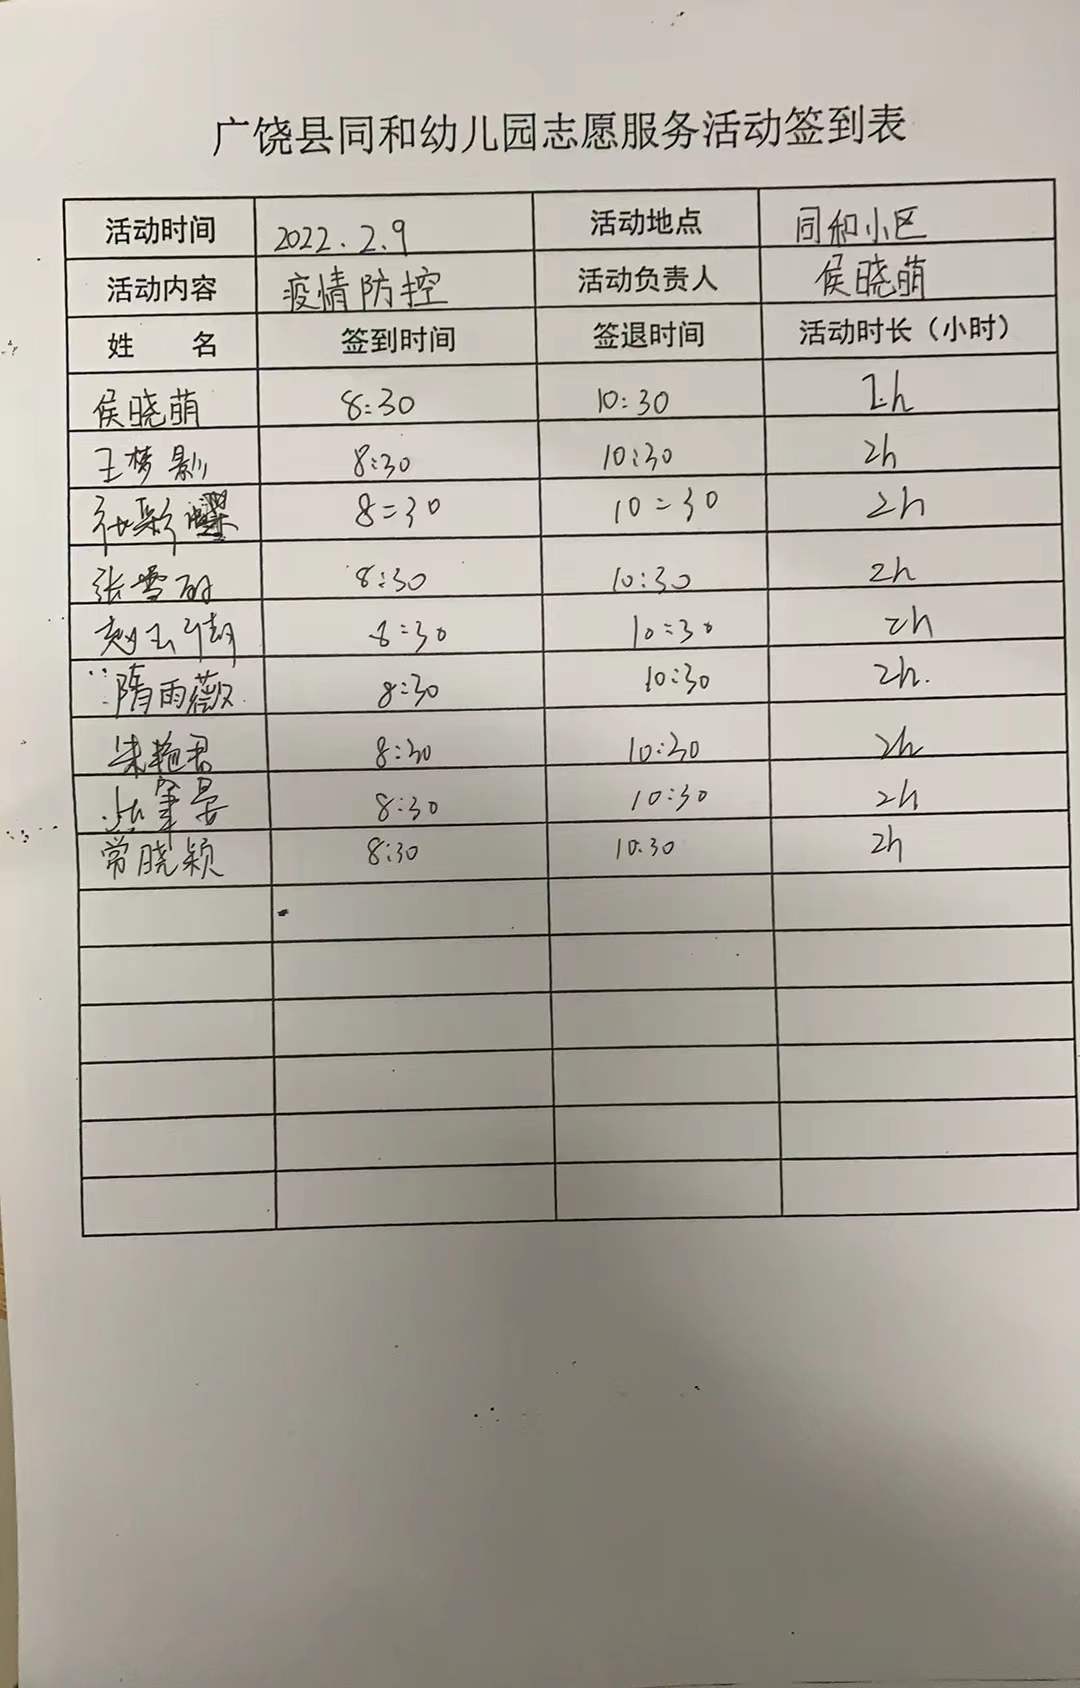 广饶县同和幼儿园志愿服务活动签到表
活动时间 2022.2.9 活动地点 同和小区
活动内容 疫情防控 活动负责人 侯晓萌
姓 名 签到时间 签退时间 活动时长（小时）
侯晓萌 8:30 10:30 2h
王梦影 8:30 10:30 2h
8=30 10=30 2h
张雪 8:30 10:30 2h
赵玉倩 8:30 10:30 2h
隋雨薇 8:30 10:30 2h.
朱艳君 8:30 10:30 2h
8:30 10:30 2h
常晓颖 8:30 10:30 2h